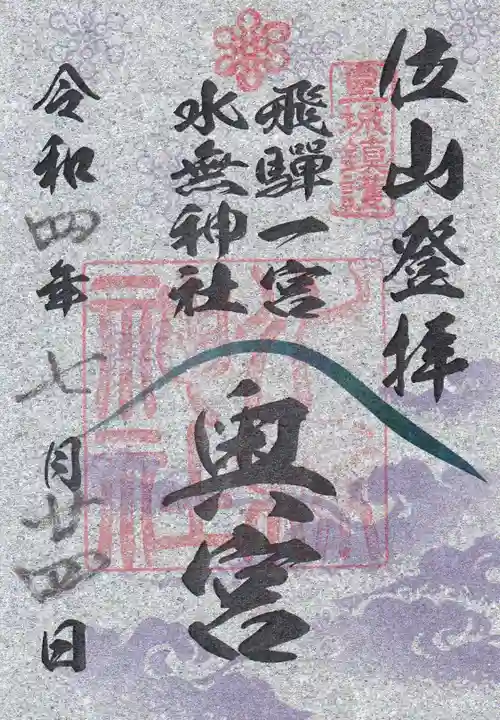 位山登拝
霊城鎮護
飛騨一宮
水無神社
奥宮
令和四年七月廿四日